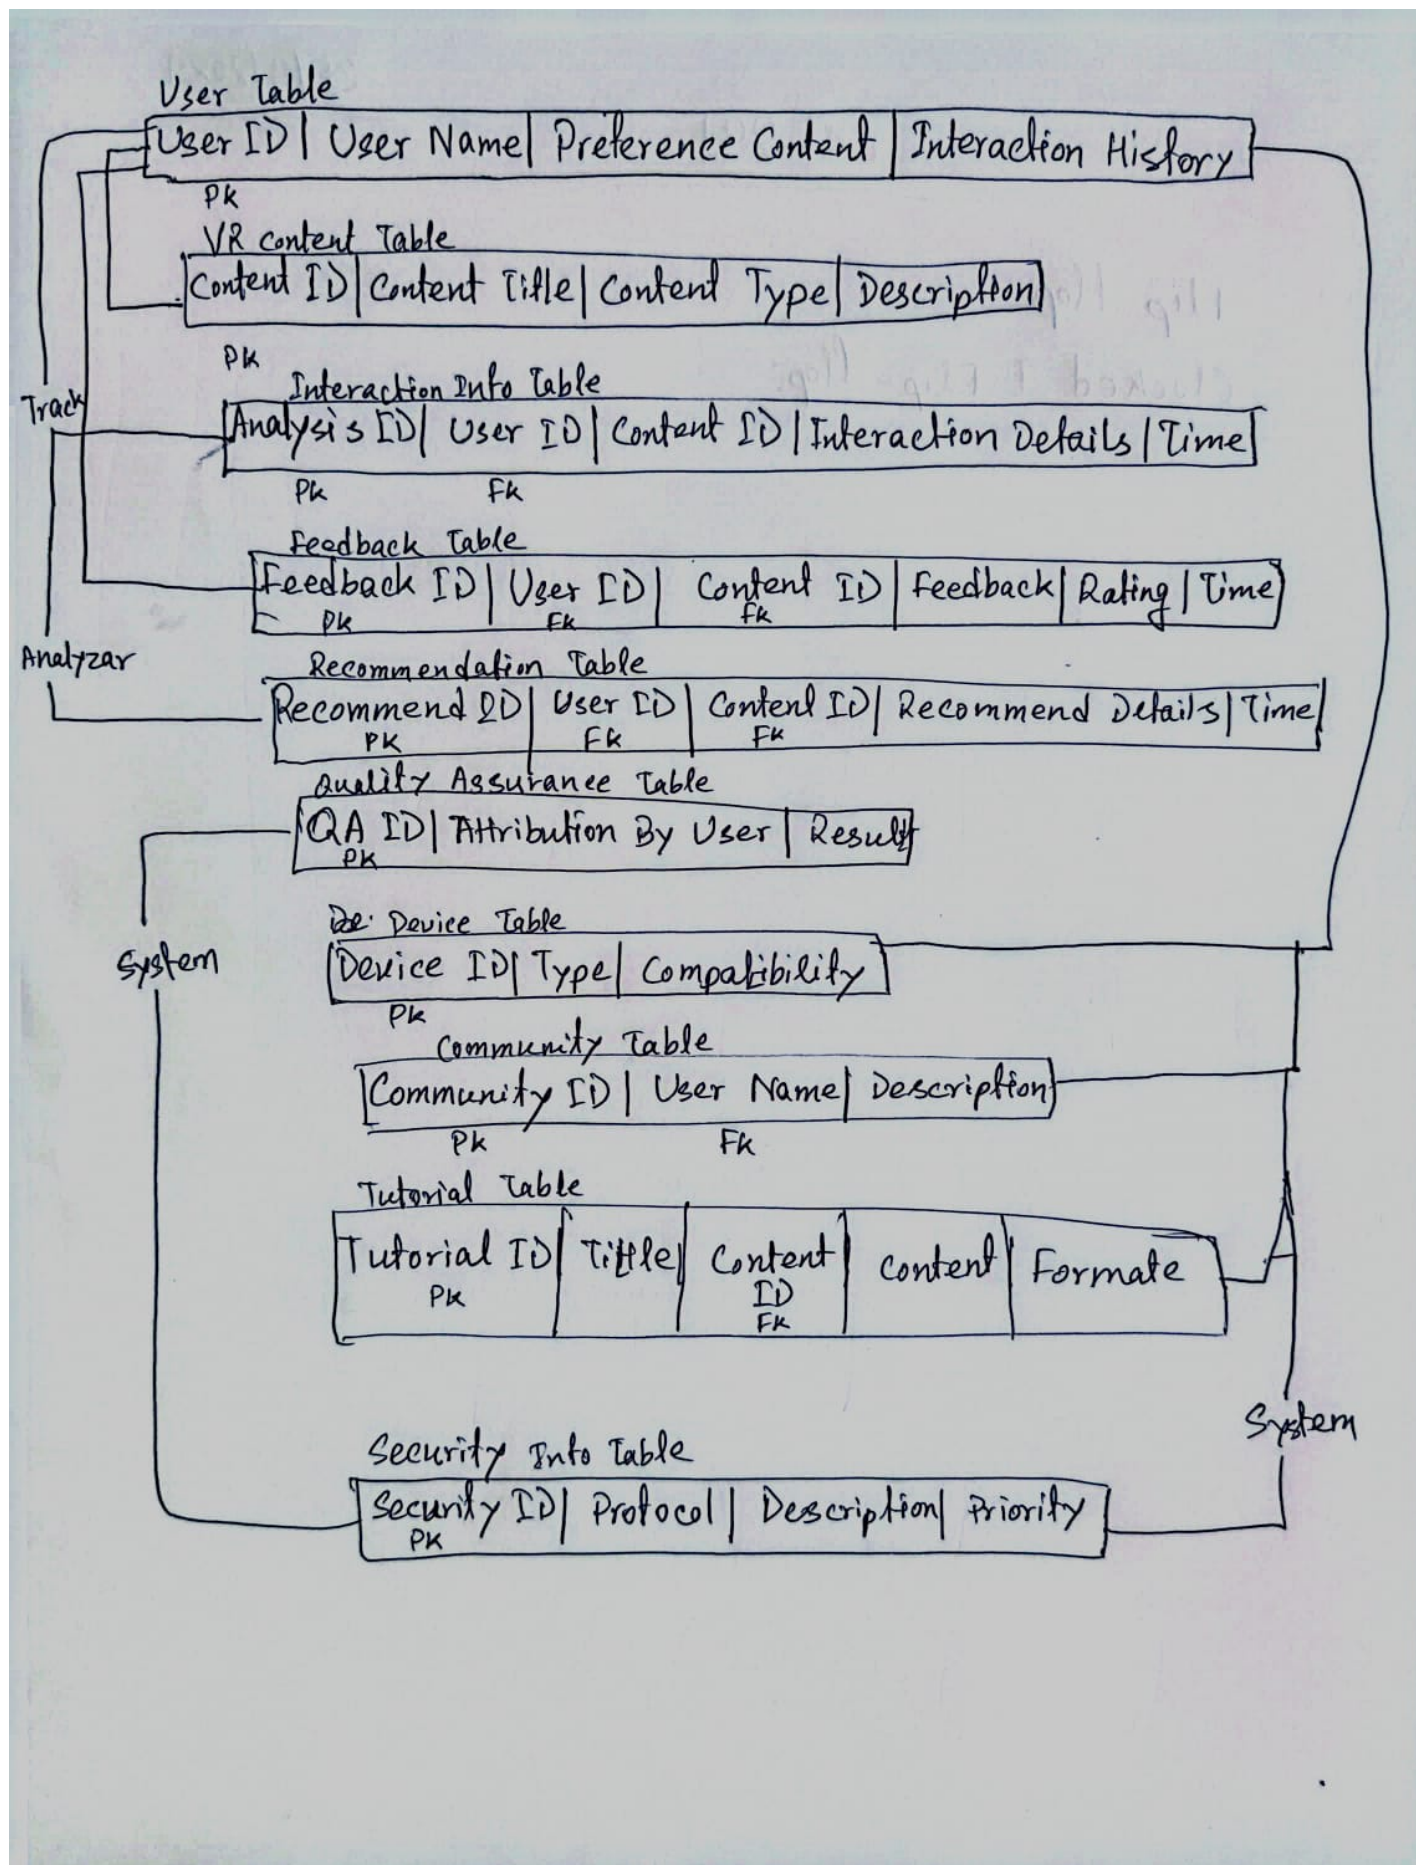 User Table
User ID | User Name | Preference Content | Interaction History
PK
VR content Table
Content ID | Content Title | Content Type | Description
PK
Interaction Info Table
Track
Analysis ID | User ID | Content ID | Interaction Details | Time
PK FK
Feedback Table
Feedback ID | User ID | Content ID | Feedback | Rating | Time
PK FK FK
Analyzar
Recommendation Table
Recommend ID | User ID | Content ID | Recommend Details | Time
PK FK FK
Quality Assurance Table
QA ID | Attribution By User | Result
PK
Device Table
System
Device ID | Type | Compatibility
PK
Community Table
Community ID | User Name | Description
PK FK
Tutorial Table
Tutorial ID | Tittle | Content | Content | Formate
PK ID
FK
System
Security Info Table
Security ID | Protocol | Description | Priority
PK